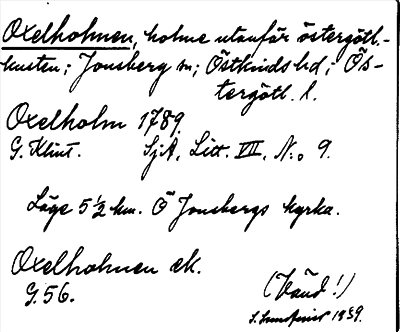 Oxelholmen, holme utanför östergötl.-
kusten; Jonsberg sn; Östkinds hd; Ös-
tergötl. l.
Oxelholm 1789.
G. Klint. SjA, Litt. VII. N:o 9.
Läge 5 1/2 km. Ö Jonsbergs kyrka.
Oxelholmen ek.
G. 56. (Vänd!)
1939.